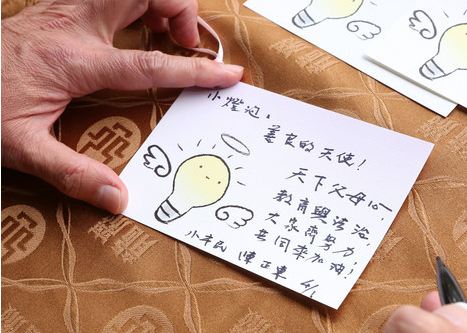 小燈泡：
善良的天使！
天下父母心，
教育與法治，
大家齊努力，
共同來加油！
小市民 陳正東 4/1